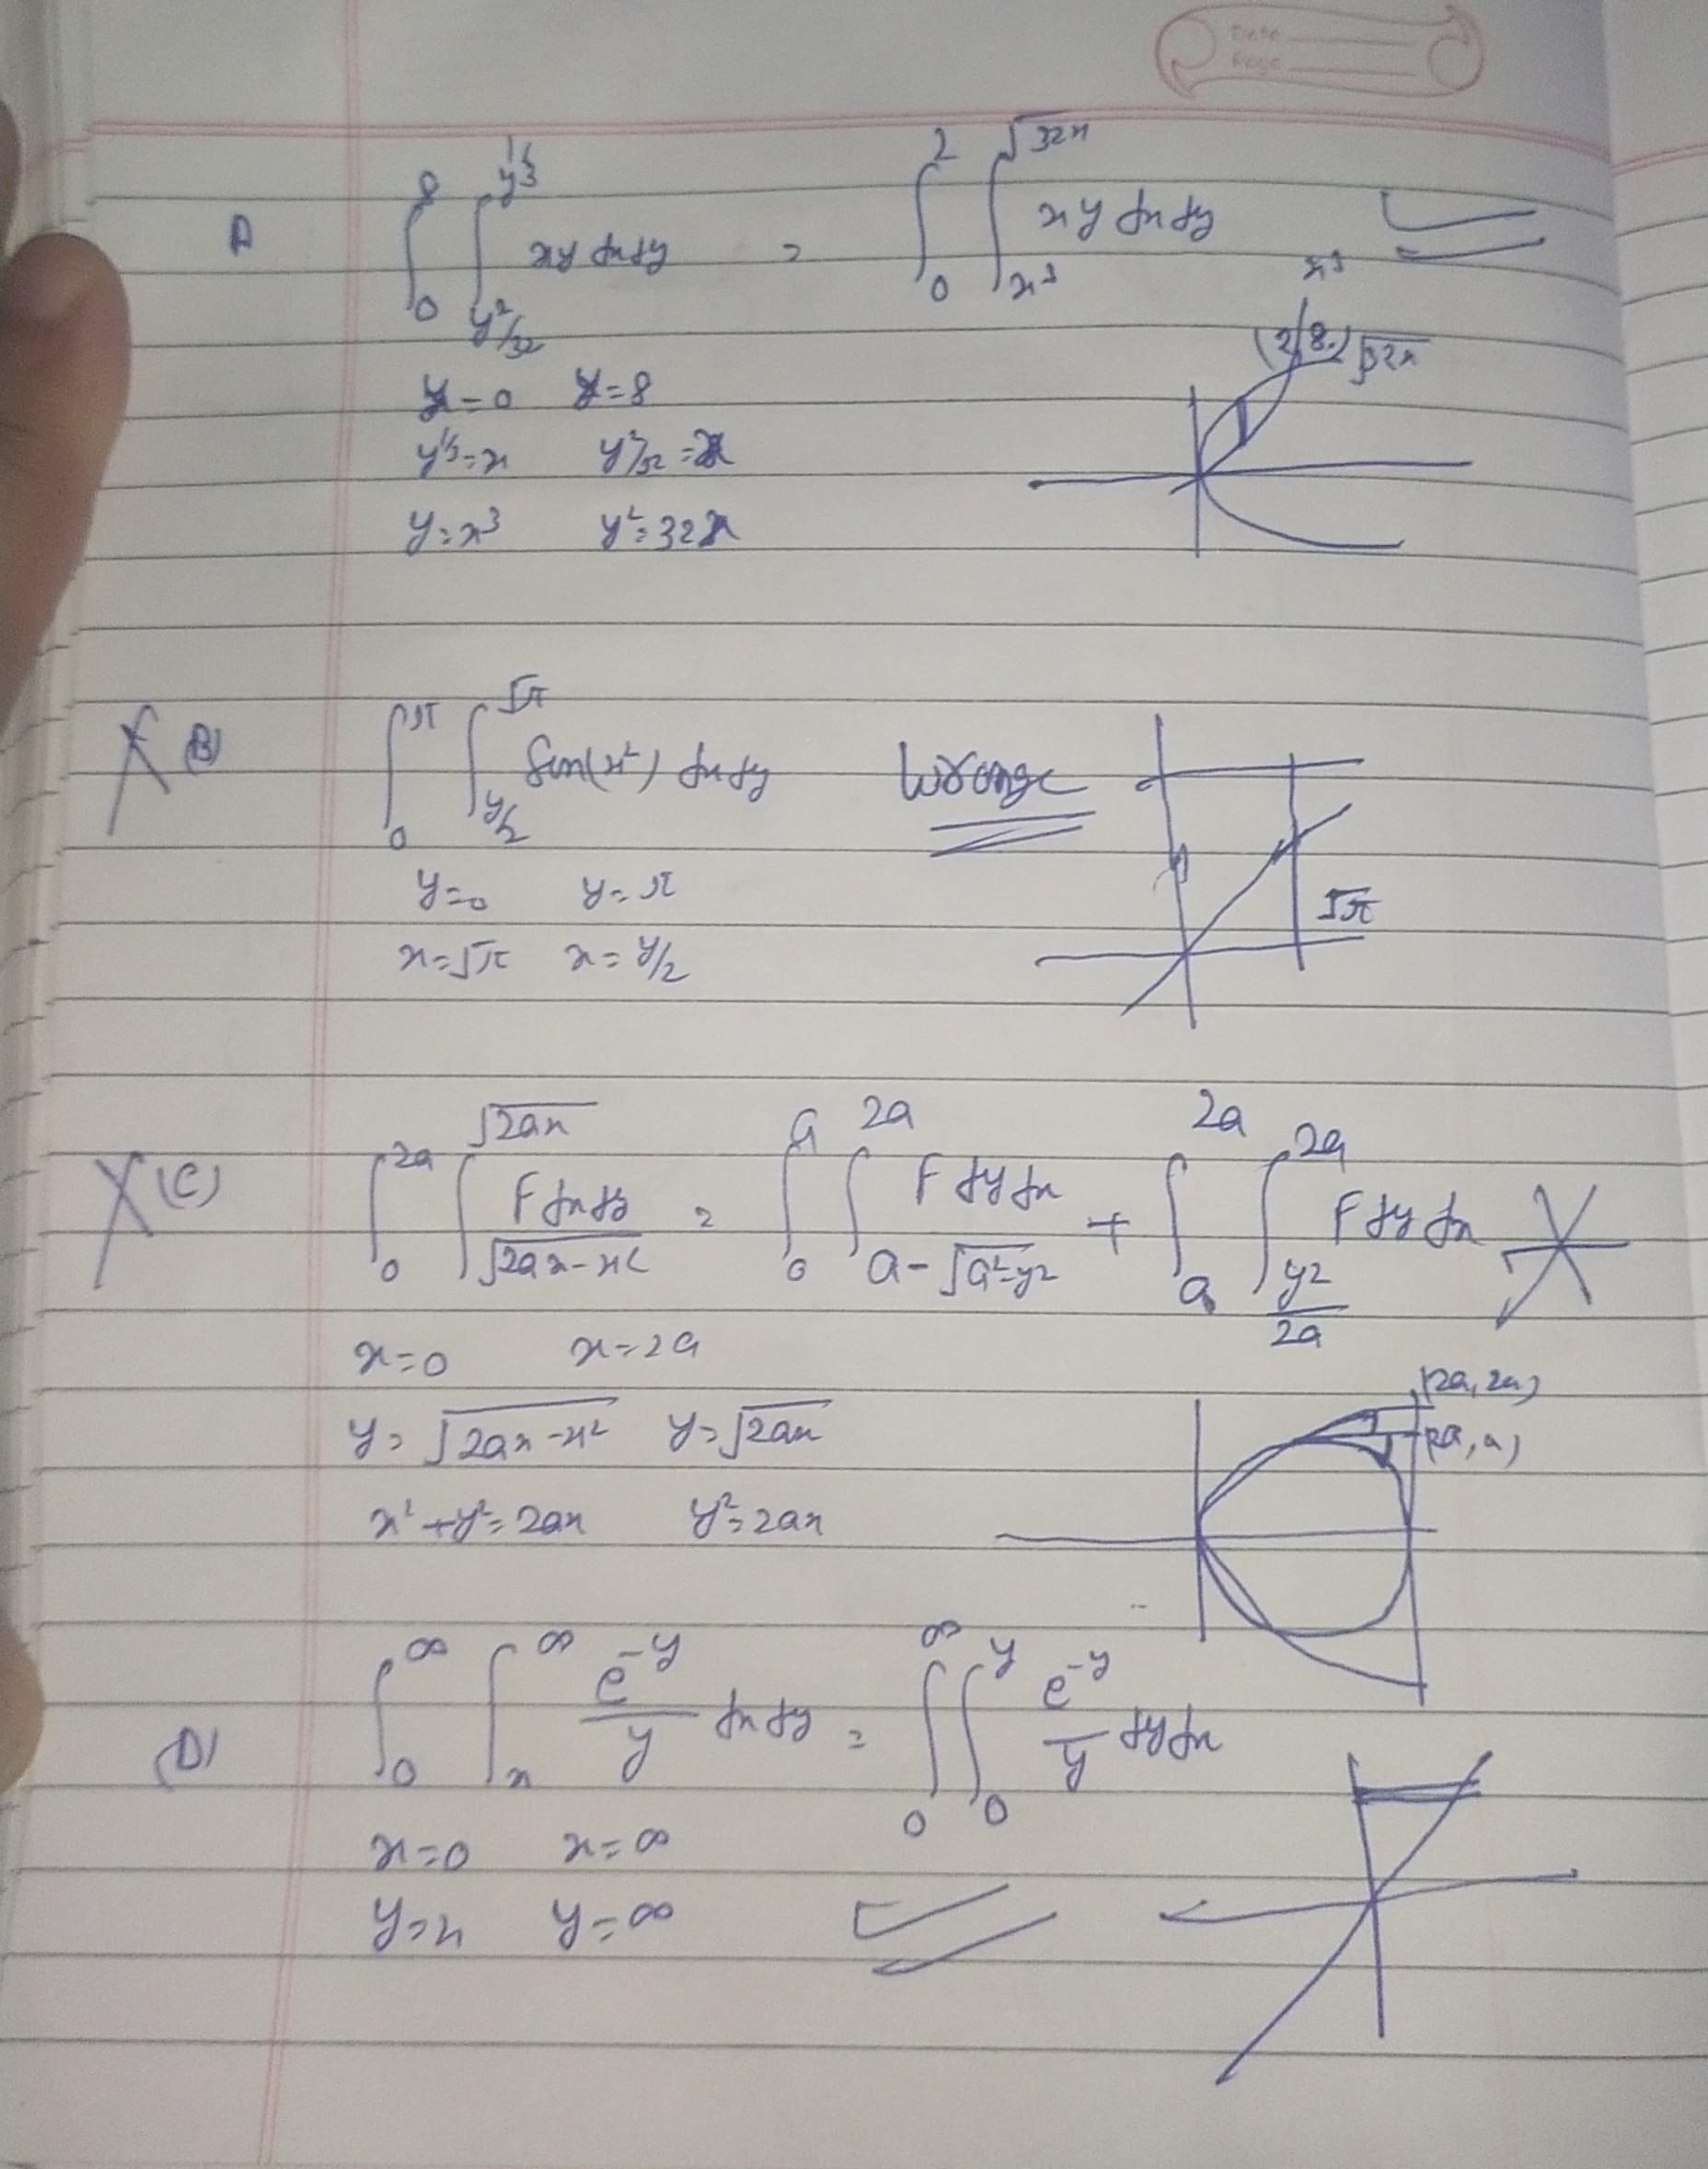 Date
Page
A ∫_0^8 ∫_{y²/32}^{y^{1/3}} xy dx dy = ∫_0^2 ∫_{x³}^{√32x} xy dx dy
x³
(2,8) √32x
y=0 y=8
y^{1/3}=x y²/32=x
y=x³ y²=32x
X (B) ∫_0^π ∫_{y/2}^{√π} Sin(x²) dx dy Wrong
y=0 y=π
√π
x=√π x=y/2
X (C) ∫_0^{2a} ∫_{√2ax-x²}^{√2ax} F dx dy = ∫_0^a ∫_{a-√a²-y²}^{2a} F dy dx + ∫_a^{2a} ∫_{y²/2a}^{2a} F dy dx X
x=0 x=2a
(2a, 2a)
y=√2ax-x² y=√2ax
(2a, a)
x²+y²=2ax y²=2ax
(D) ∫_0^∞ ∫_x^∞ e^{-y}/y dx dy = ∫_0^∞ ∫_0^y e^{-y}/y dy dx
x=0 x=∞
y=x y=∞